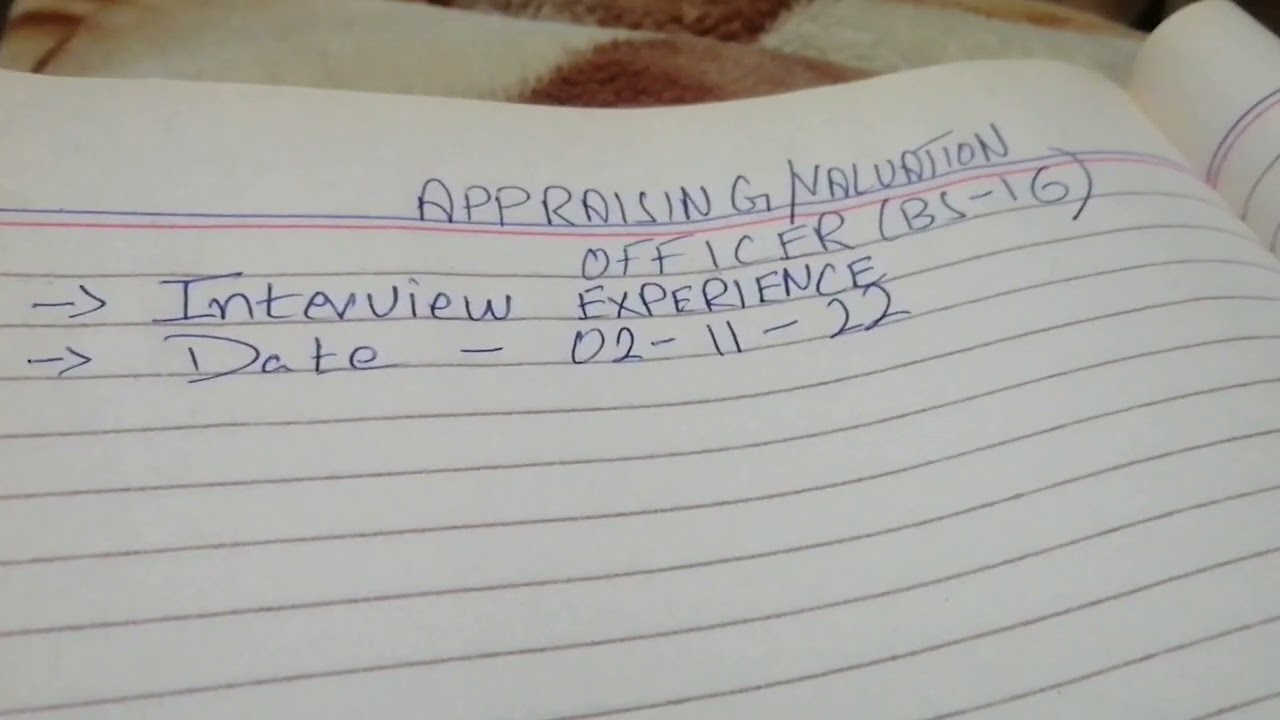 APPRAISING/VALUATION
OFFICER (BS-16)
→ Interview EXPERIENCE
→ Date - 02-11-22